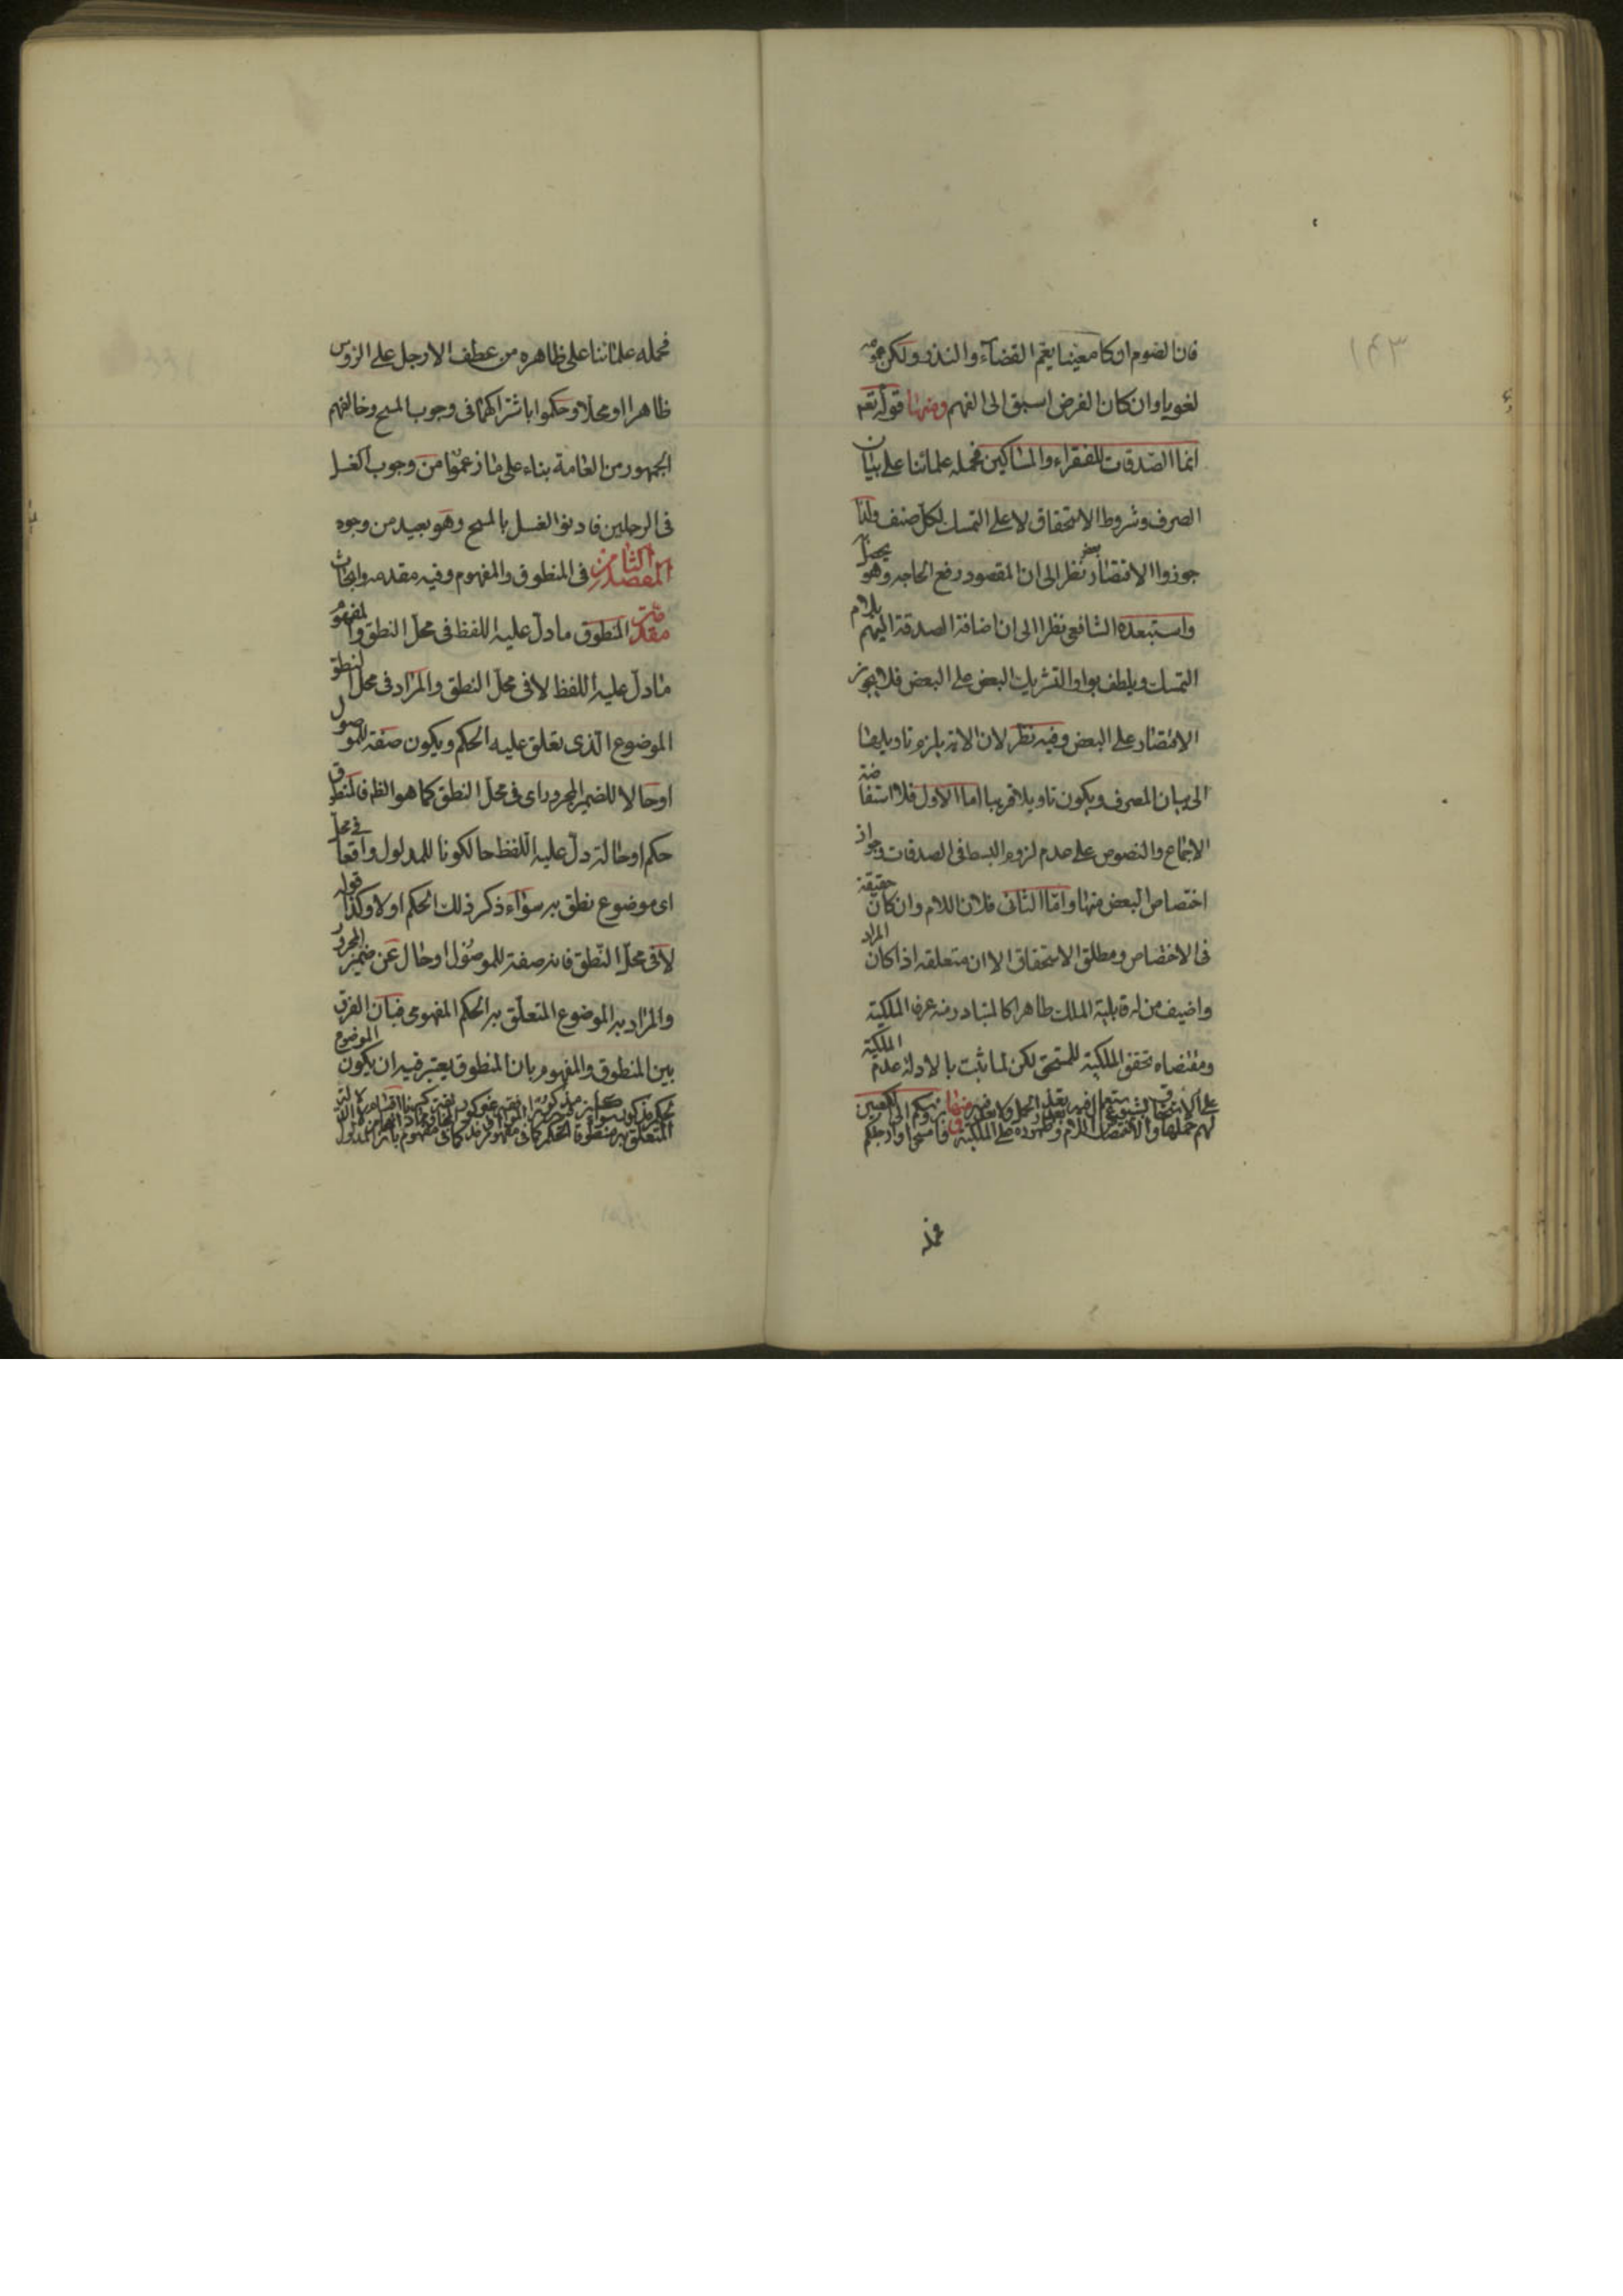 ١٤٣
فان الصوم وان كان معينا يعم القضاء والنذر ولكن عمومه
لغويا وان كان الفرض اسبق الى الفهم ومنها قوله تعم
انما الصدقات للفقراء والمساكين فحمله علمائنا على بيان
الصرف وشروط الاستحقاق لا على التمسك لكل صنف ولذا
جوزوا الاقتصار نظرا الى ان المقصود رفع الحاجه وهو يحصل
واستبعده الشافعى نظرا الى ان اضافة الصدقة اليهم بلام
التمسك ويلطف بواو التشريك البعض على البعض فلا يجوز
الاقتصار على البعض وفيه نظر لان الاية يلزم تاويلها
الى بيان المصرف ويكون تاويلا قريبا اما الاول فلاستفاضة
الاجماع والنصوص على عدم لزوم البسط فى الصدقات وجواز
اختصاص البعض منها واما الثانى فلان اللام وان كان حقيقة
فى الاختصاص ومطلق الاستحقاق الا ان متعلقه اذا كان المراد
واضيف من له قابلية الملك ظاهرا كالمتبادر منه عرفا الملكية
ومقتضاه تحقق الملكية للمستحق لكن لما ثبت بالادلة عدم الملكية
لهم حملها والاختصاص اللام وظهوره على الملكية فامسحوا وارجلكم
فحمله
فحمله علمائنا على ظاهره من عطف الارجل على الرؤس
ظاهرا او محلا وحكموا باشتراكهما فى وجوب المسح وخالفهم
الجمهور من العامة بناء على ما زعموا من وجوب الغسل
فى الرجلين فاولوا الغسل بالمسح وهو بعيد من وجوه
المقصد الثامن فى المنطوق والمفهوم وفيه مقدمه وابحاث
مقدمة المنطوق ما دل عليه اللفظ فى محل النطق والمفهوم
ما دل عليه اللفظ لا فى محل النطق والمراد فى محل النطق
الموضوع الذى تعلق عليه الحكم ويكون صفة للموصول
او حالا للضمير المجرور اى فى محل النطق كما هو الظ فالمنطوق
حكم او حالة دل عليه اللفظ حالكونا للمدلول واقعا فى محل
اى موضوع نطق به سواء ذكر ذلك الحكم او لا وكذا قوله
لا فى محل النطق فانه صفة للموصول او حال عن ضمير المجرور
والمراد به الموضوع المتعلق به الحكم المفهومى فبان الفرق
بين المنطوق والمفهوم بان المنطوق يعتبر فيه ان يكون الموضوع